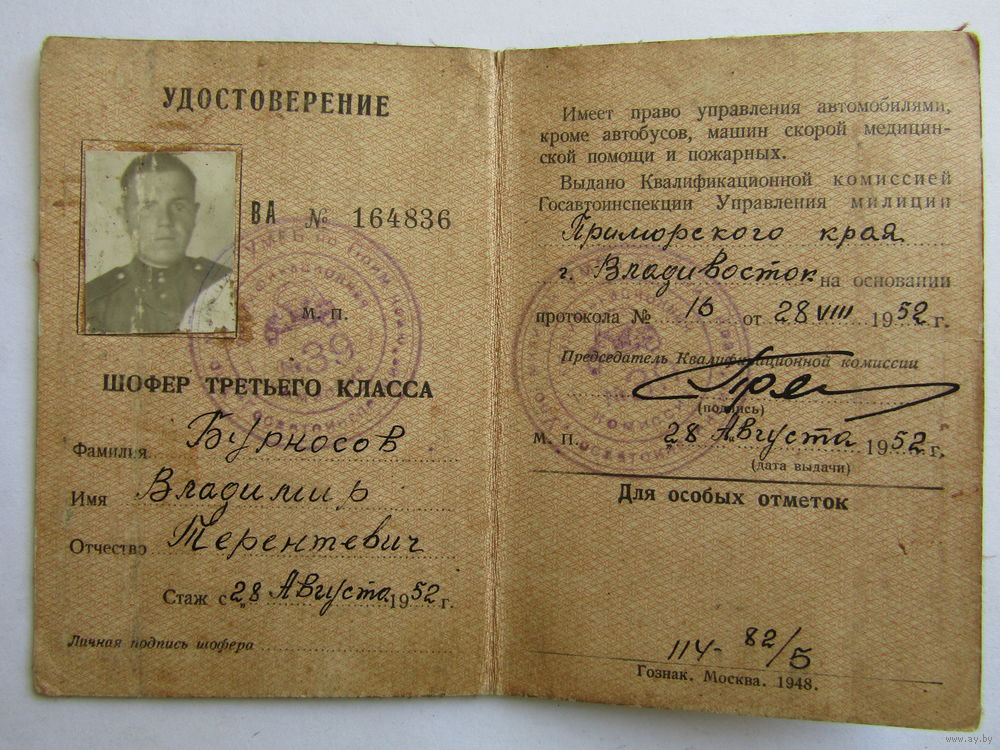 УДОСТОВЕРЕНИЕ
ВА № 164836
М. П.
ШОФЕР ТРЕТЬЕГО КЛАССА
Фамилия Бурносов
Имя Владимир
Отчество Терентевич
Стаж с 28 Августа 1952 г.
Личная подпись шофера
Имеет право управления автомобилями,
кроме автобусов, машин скорой медицин-
ской помощи и пожарных.
Выдано Квалификационной комиссией
Госавтоинспекции Управления милиции
Приморского края
г. Владивосток на основании
протокола № 16 от 28 VIII 1952 г.
Председатель Квалификационной комиссии
(подпись)
М. П. 28 Августа 1952 г.
(дата выдачи)
Для особых отметок
114- 82/5
Гознак. Москва. 1948.
www.ay.by